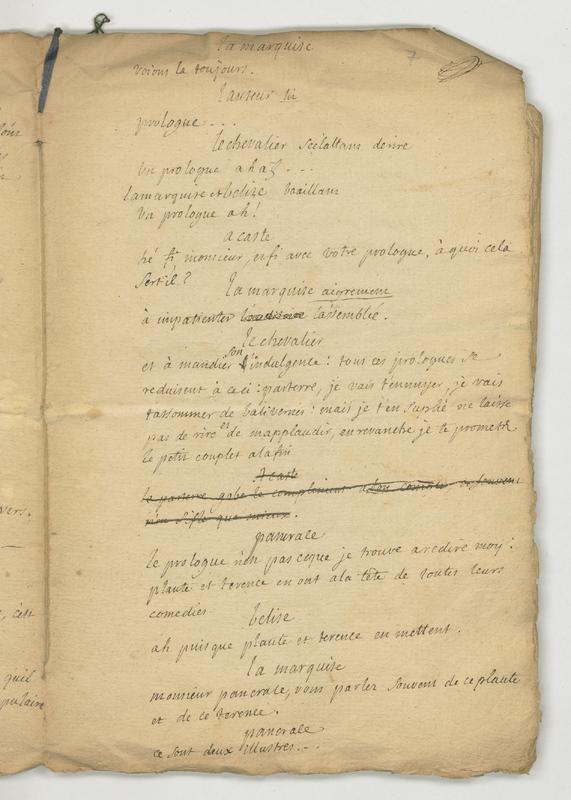 la marquise
7
voions la toujours.
l'auteur lit
prologue - - -
le chevalier s'éclattant de rire
un prologue ah ah - - -
la marquise et belise baaillant
un prologue ah!
acaste
hé fi monsieur, eh fi avec votre prologue, à quoi cela
sert il?
la marquise aigrement
à impatienter l'assemblée.
le chevalier
et à mandier son indulgence: tous ces prologues se
reduisent à ceci: parterre, je vais t'ennuyer, je vais
t'assommer de balivernes: mais je t'en suplie ne laisse
pas de rire et de m'applaudir, en revanche je te promets
le petit couplet a la fin
Acaste
le parterre gobe le compliment et souvent
n'en sifle que mieux.
pancrace
le prologue n'est pas ce que je trouve a redire moy:
plaute et terence en ont a la tête de toutes leurs
comedies
belise
ah puisque plaute et terence en mettent.
la marquise
monsieur pancrace, vous parlez souvent de ce plaute
et de ce terence.
pancrace
ce sont deux illustres - - -
vers.
, c'est
qu'il
pulaire